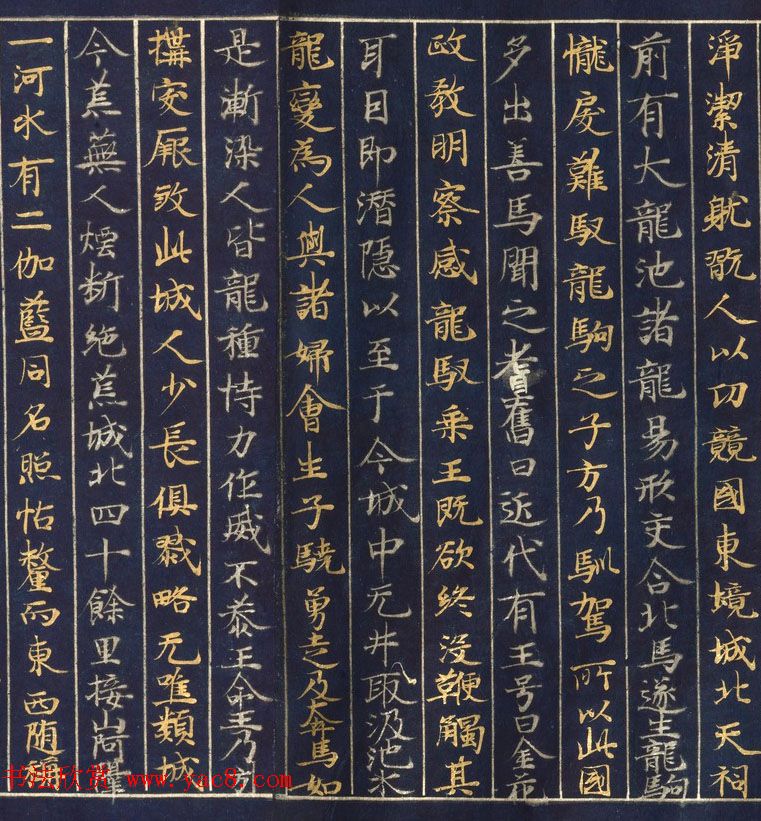 淨潔清躭翫人以功競國東境城北天祠
前有大龍池諸龍易形交合牝馬遂生龍駒
㦬戾難馭龍駒之子方乃馴駕所以此國
多出善馬聞之耆舊曰近代有王号曰金花
政教明察感龍馭乘王既欲終沒鞭觸其
耳目即潛隱以至于今城中无井取汲池水
龍變為人與諸婦會生子驍勇走及奔馬如
是漸染人皆龍種恃力作威不恭王命王乃
搆突厥致此城人少長俱戮略无唯類城
今荒蕪人煙斷絕荒城北四十餘里接山
一河水有二伽藍同名照怙釐而東西随稱
书法欣赏 www.yac8.com